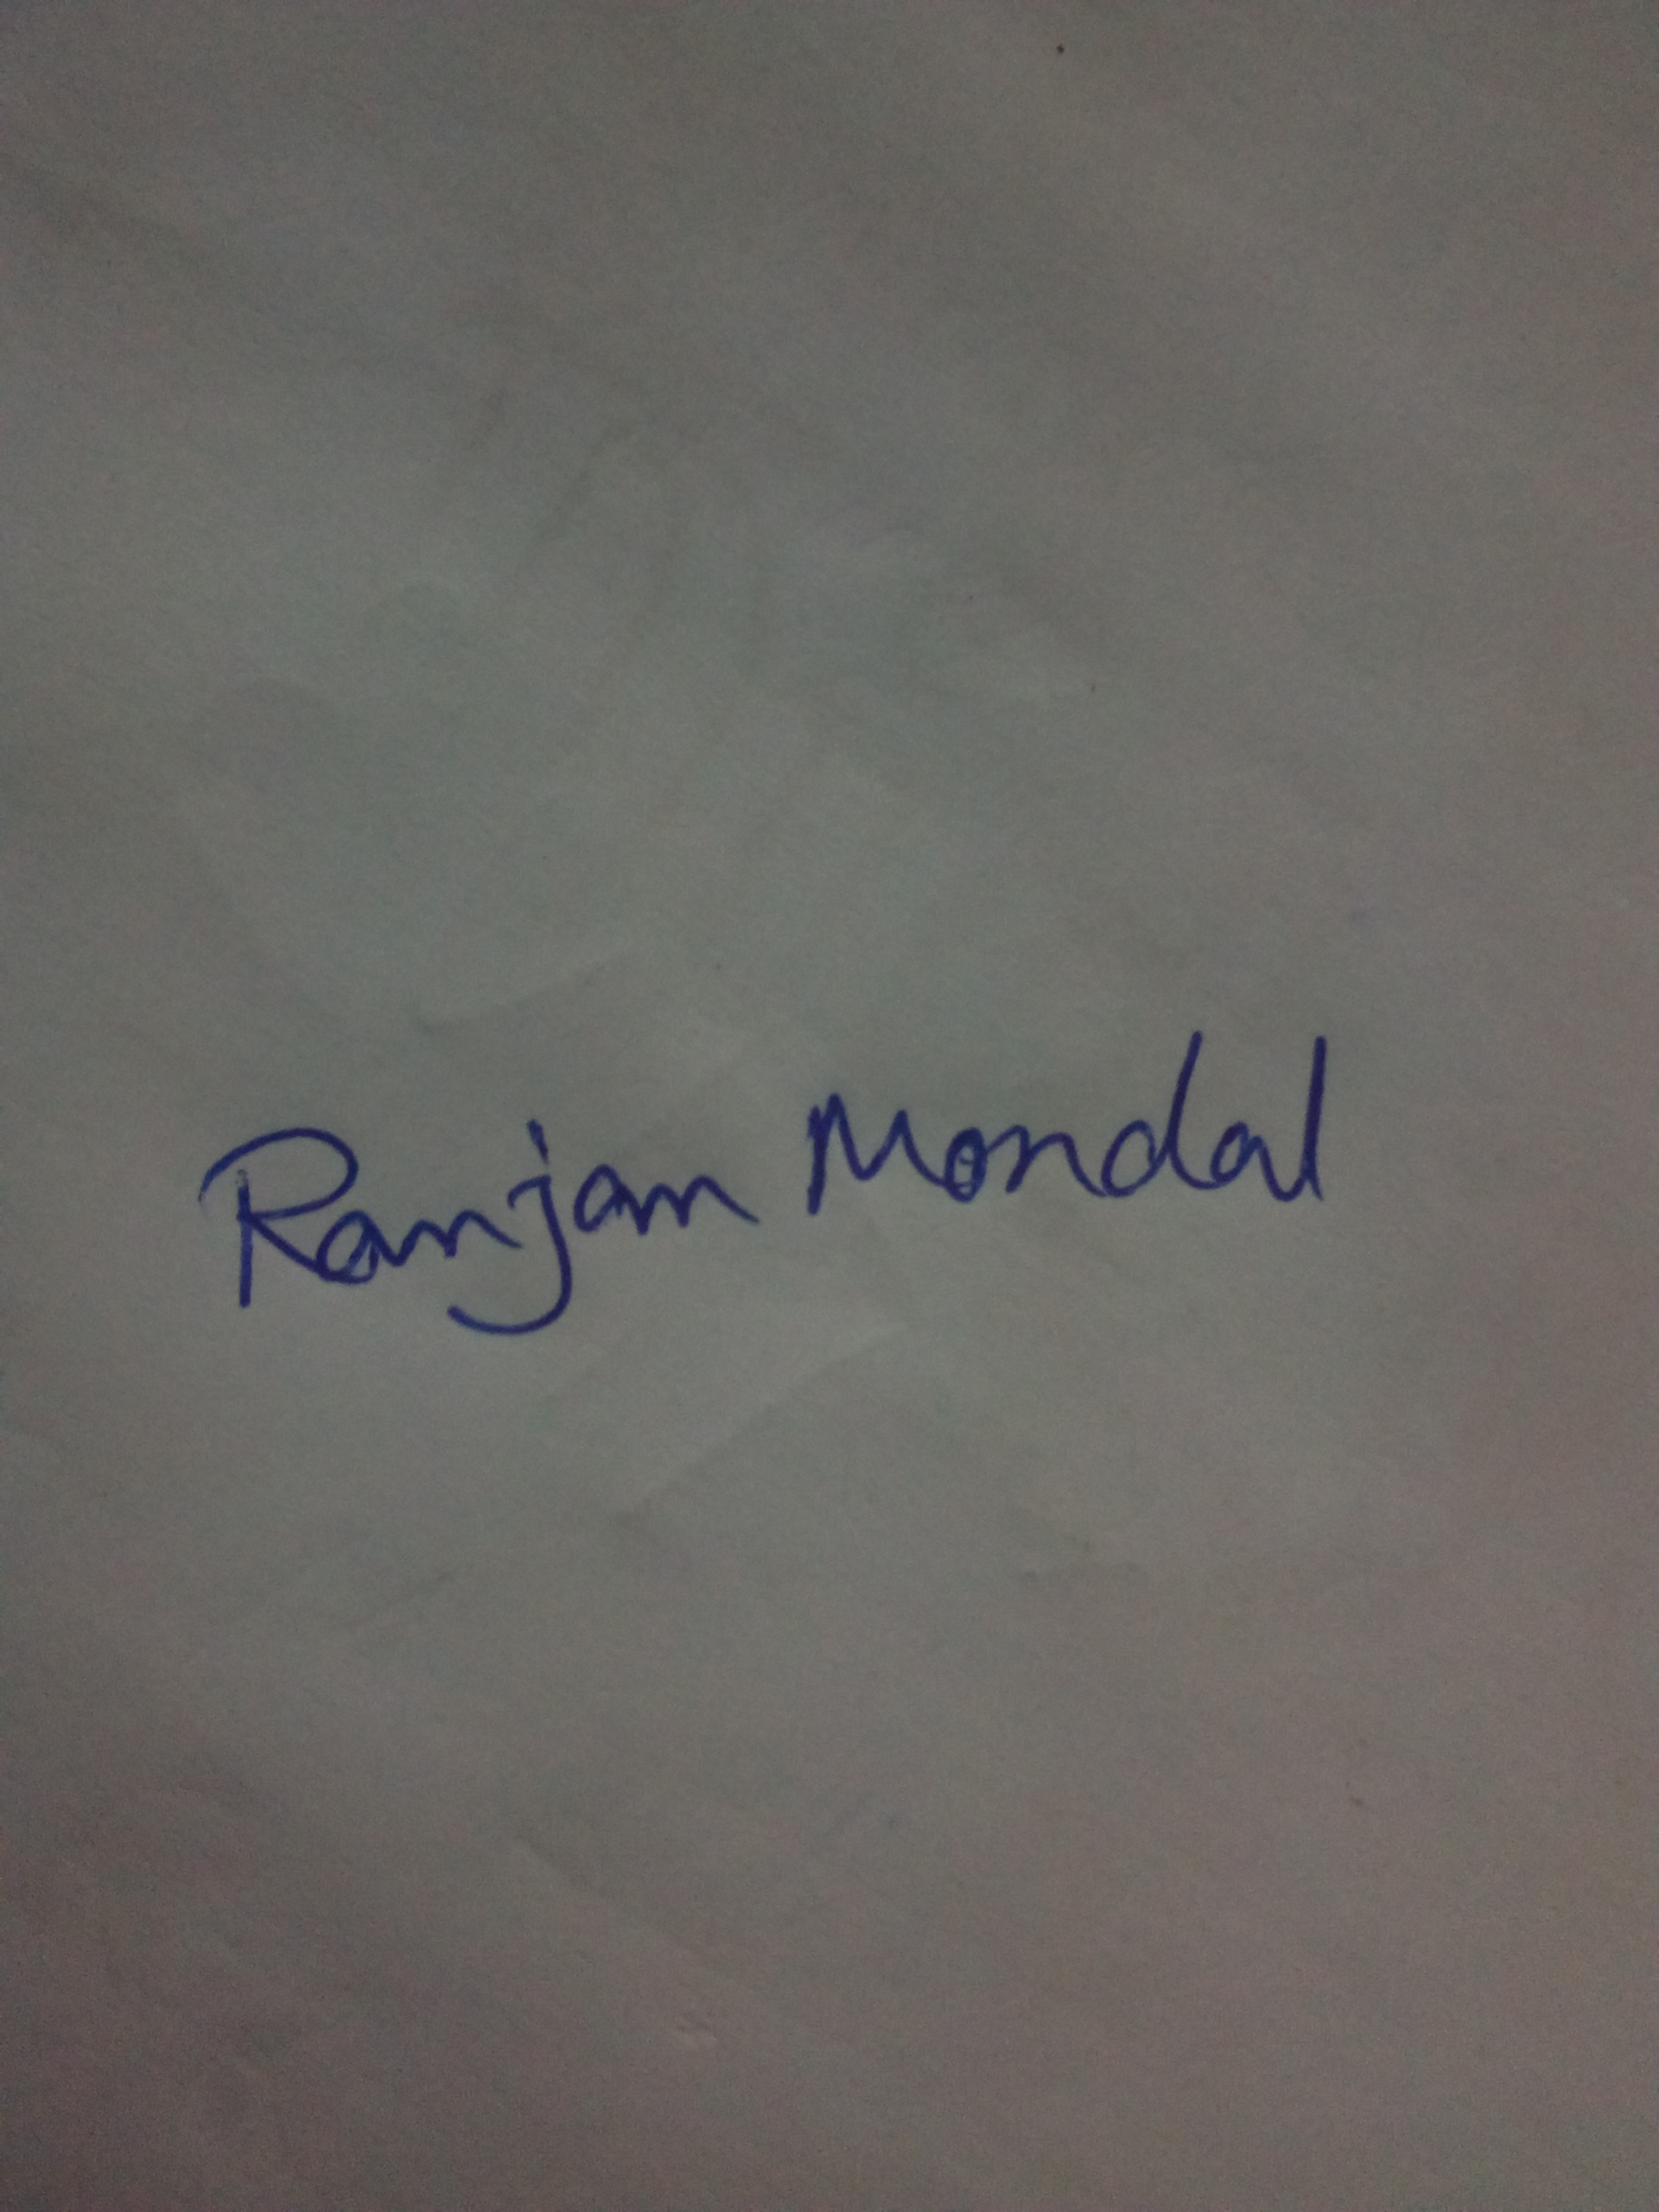 Ranjan Mondal